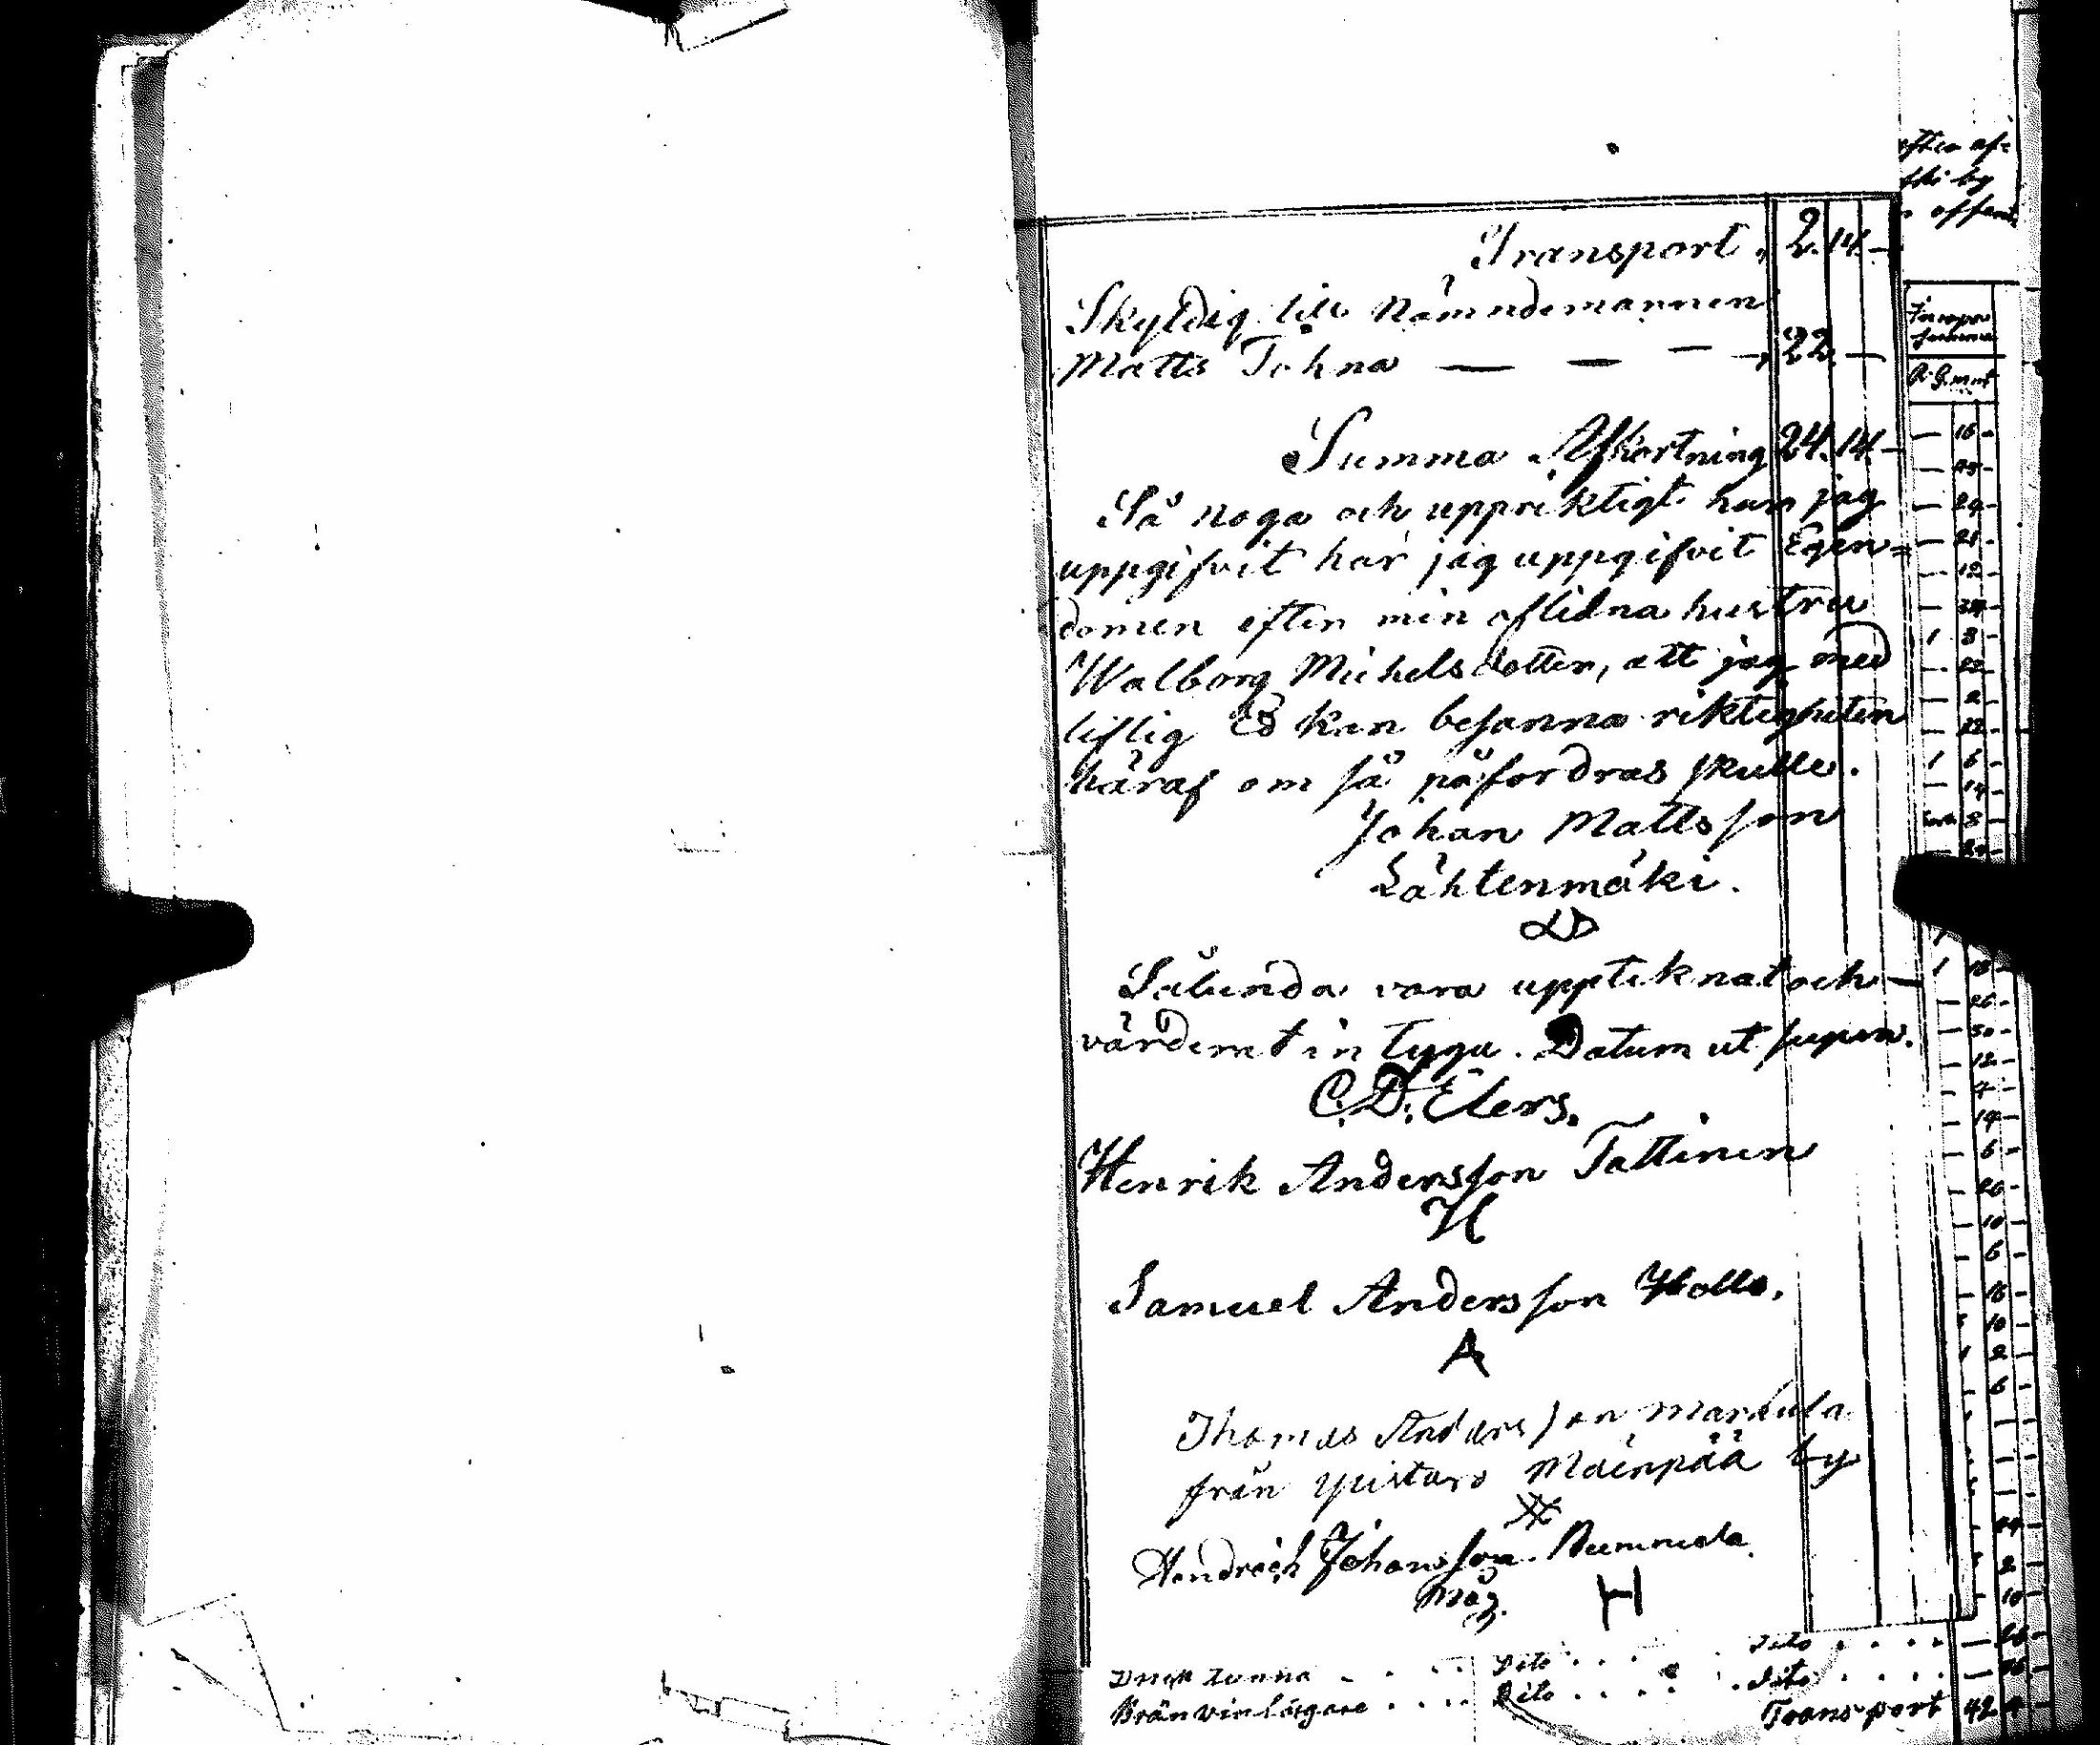 Transport „ 2. 14. —
Skyldig till Nämndemannen
Matts Tohna — — — —, 22. —
Summa Afkortning 24. 14. —
Så noga och uppriktigt har jag
uppgifvit har jag uppgifvit Egen=
domen efter min aflidna hustru
Walborg Michelsdotter, att jag med
liflig Ed kan besanna riktigheten
häraf om så påfordras skulle.
Johan Mattsson
Lähtenmäki.
Sålunda vara uppteknat och
värderat in tyga. Datum ut supra.
C. D. Elers.
Henrik Andersson Tattinen
H
Samuel Andersson
A
Thomas Andersson Markula
från Ylistaro Mäenpää by
Hendrich Johansson
Måg. H
efter af=
by
R. S. mnt
— 16 —
— 24 —
— 21 —
— 12 —
1 8 —
— 2 —
1 6 —
— 14 —
1 10 —
— 50 —
— 12 —
— 4 —
— 14 —
— 6 —
— 20 —
— 10 —
— 6 —
— 16 —
10 —
2 —
6 —
2 —
10 —
Dito . . . . —
tunna . . . . Dito . . . . Dito . . . . —
Bränvinslägare . . . . Dito . . . . Transport 42